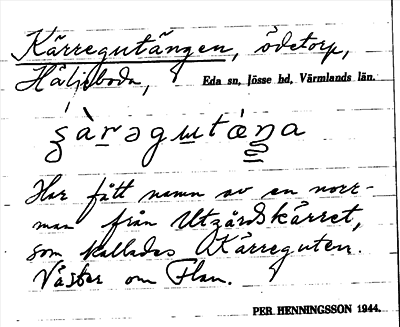 Kärregutängen, ödetorp,
Häljeboda, Eda sn, Jösse hd, Värmlands län.
ʂàrəgutæŋa
Har fått namn av en norr-
man från Utgårdskärret,
som kallades Kärreguten.
Väster om Flan.
PER HENNINGSSON 1944.